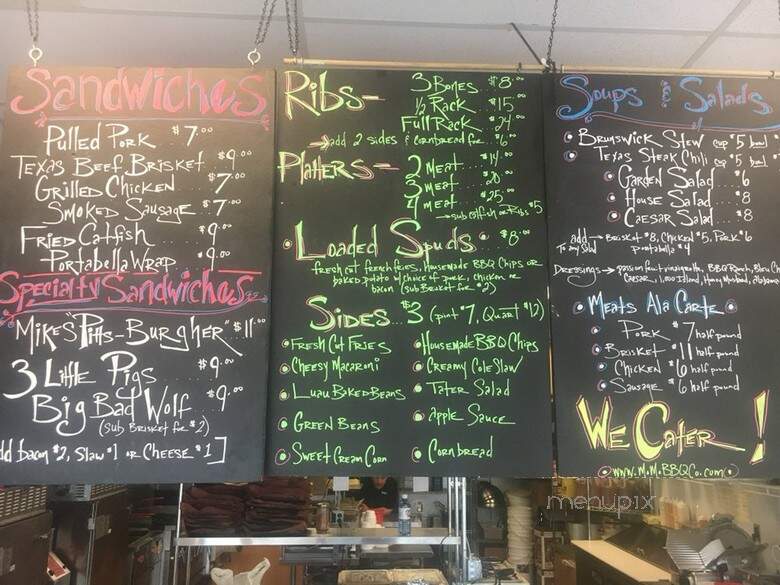 Sandwiches
Pulled Pork $7.00
Texas Beef Brisket $9.00
Grilled Chicken $7.00
Smoked Sausage $7.00
Fried Catfish $9.00
Portabella Wrap $9.00
Specialty Sandwiches
Mikes "Pitts-Burgher" $11.00
3 Little Pigs $9.00
Big Bad Wolf $9.00
(sub Brisket for $2)
dd bacon $2, Slaw $1 or Cheese $1]
Ribs- 3 Bones $8.00
1/2 Rack $15
Full Rack $24.00
add 2 sides & Cornbread for $6.00
Platters- 2 meat $14.00
3 meat $20.00
4 meat $25.00
sub catfish or Ribs $5
Loaded Spuds $8.00
fresh cut french fries, Housemade BBQ Chips or
baked potato w/ choice of pork, chicken or
bacon (sub Brisket for $2)
Sides $3 (pint $7, Quart $12)
Fresh Cut Fries
Cheesy Macaroni
Luau Baked Beans
Green Beans
Sweet Cream Corn
Housemade BBQ Chips
Creamy Cole Slaw
Tater Salad
Apple Sauce
Cornbread
Soups & Salads
Brunswick Stew cup $5 bowl
Texas Steak Chili cup $5 bowl
Garden Salad $6
House Salad $8
Caesar Salad $8
add To Any Salad Brisket $8, Chicken $5, Pork $6
Portabella $4
Dressings passion fruit vinaigrette, BBQ Ranch, Bleu Ch
Caesar, 1,000 Island, Honey Mustard,
Meats Ala Carte
Pork $7 half pound
Brisket $11 half pound
Chicken $6 half pound
Sausage $6 half pound
We Cater!
www.M.M.BBQCo.com
menupix